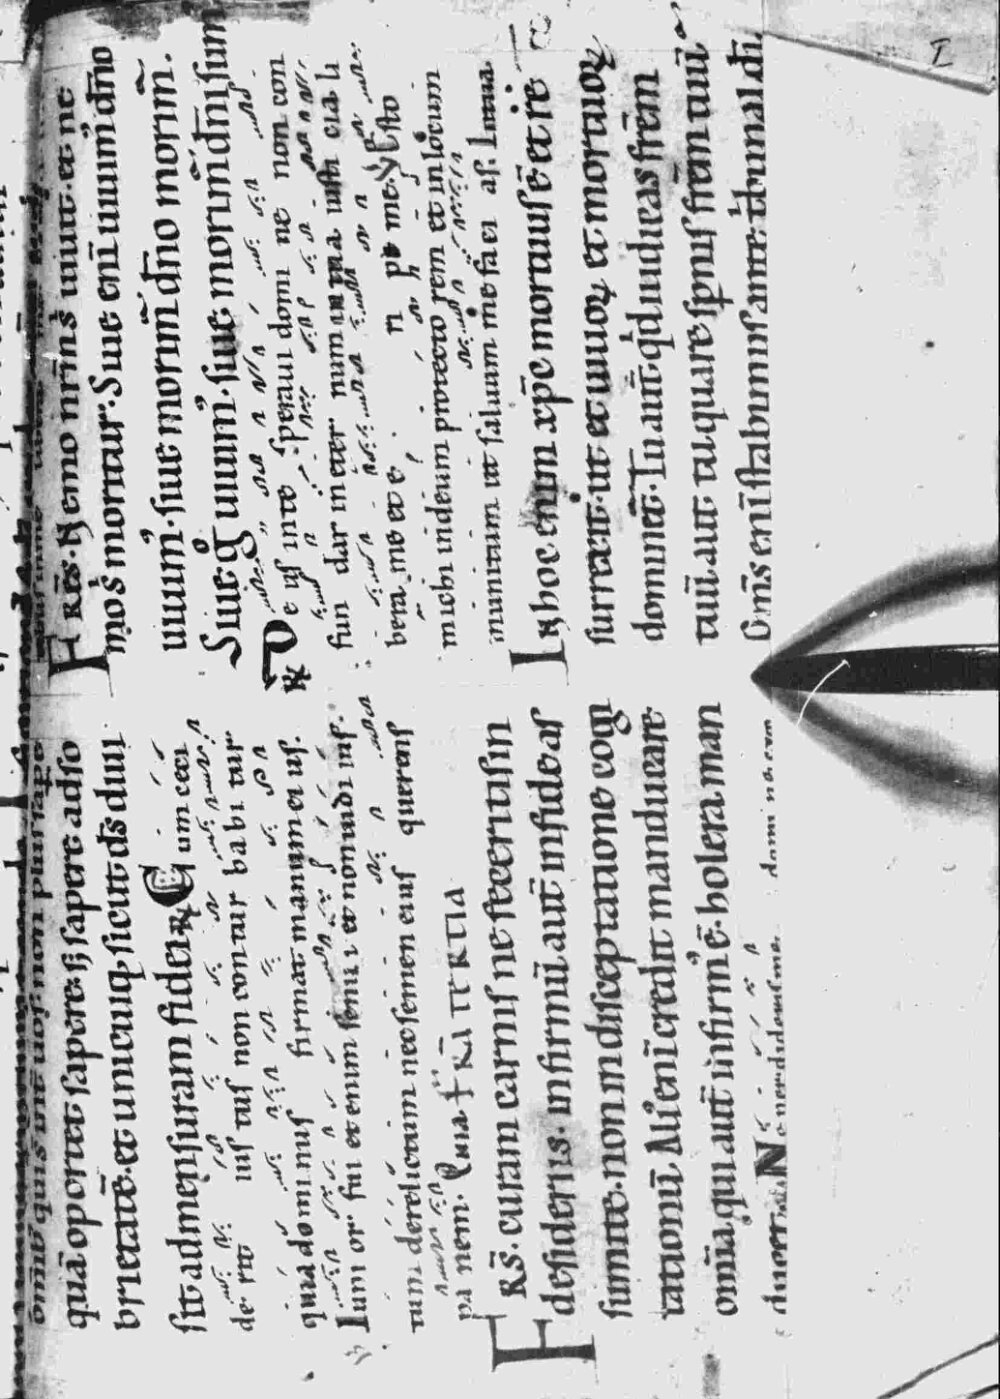 omib; quisunt uos non plussape
quā oportet sapere. sʒ sapere adso
brietatē. et unicuiq; sicut ds̄ diui
sit ad mensuram fidei. R Cum ceci
de rit ius tus non con tur babi tur
quia do mi nus firmat manum ei us.
Iuni or fui et enim senu i et non uidi ius.
tum derelictum nec semen eius querens
pa nem. FRĀ TERTIA
FRS̄. curam carnis ne feceritis in
desideriis. infirmū aūt in fide as
sumite. non in disceptatione cogi
tationū. Ali' enī credit manducare
omīa. qui aūt infirm' ē. holera man
ducet. Ne
FRES̄. Nemo nr̄m s' uiuit. et ne
mo s' moritur. Siue enī uiuim' dn̄o
uiuim'. siue morim̄ dn̄o morim̄.
Siue g° uiuim'. siue morim̄ dn̄i sum
R De us in te speraui domi ne non con
fun dar in eter num in tua iusti cia li
bera me et e ri pe me. V Esto
michi in deum protecto rem et in locum
munitum ut saluum me faci as. In tua
In hoc enim xp̄c mortuus ē et re
surrexit. ut et uiuoꝝ et mortuoꝝ
dominet̄. Tu aūt qd iudicas frēm
tuū aut tu quare spnis frām tuū
Omīs enī stabimus ante tbunal dī.